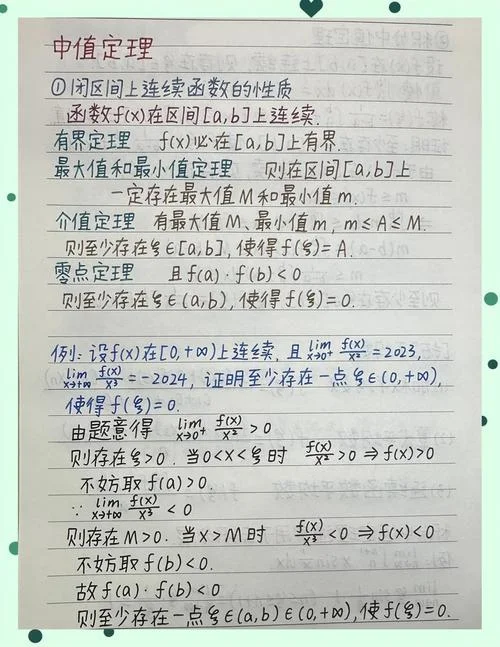 中值定理
①闭区间上连续函数的性质
函数f(x)在区间[a,b]上连续.
有界定理 f(x)必在[a,b]上有界.
最大值和最小值定理 则在区间[a,b]上
一定存在最大值M和最小值m.
介值定理 有最大值M、最小值m, m≤A≤M.
则至少存在ξ∈[a,b],使得f(ξ)=A.
零点定理 且f(a)·f(b)<0
则至少存在ξ∈(a,b),使得f(ξ)=0.
例:设f(x)在[0,+∞)上连续,且lim_{x→0⁺} f(x)/x²=2023,
lim_{x→+∞} f(x)/x³=-2024,证明至少存在一点ξ∈(0,+∞),
使得f(ξ)=0.
由题意得 lim_{x→0⁺} f(x)/x²>0
则存在ξ>0.当0<x<ξ时 f(x)/x²>0⇒f(x)>0
不妨取f(a)>0.
∵lim_{x→+∞} f(x)/x³<0
则存在M>0.当x>M时 f(x)/x³<0⇒f(x)<0
不妨取f(b)<0.
故f(a)·f(b)<0
则至少存在一点ξ∈(a,b)∈(0,+∞),使f(ξ)=0.